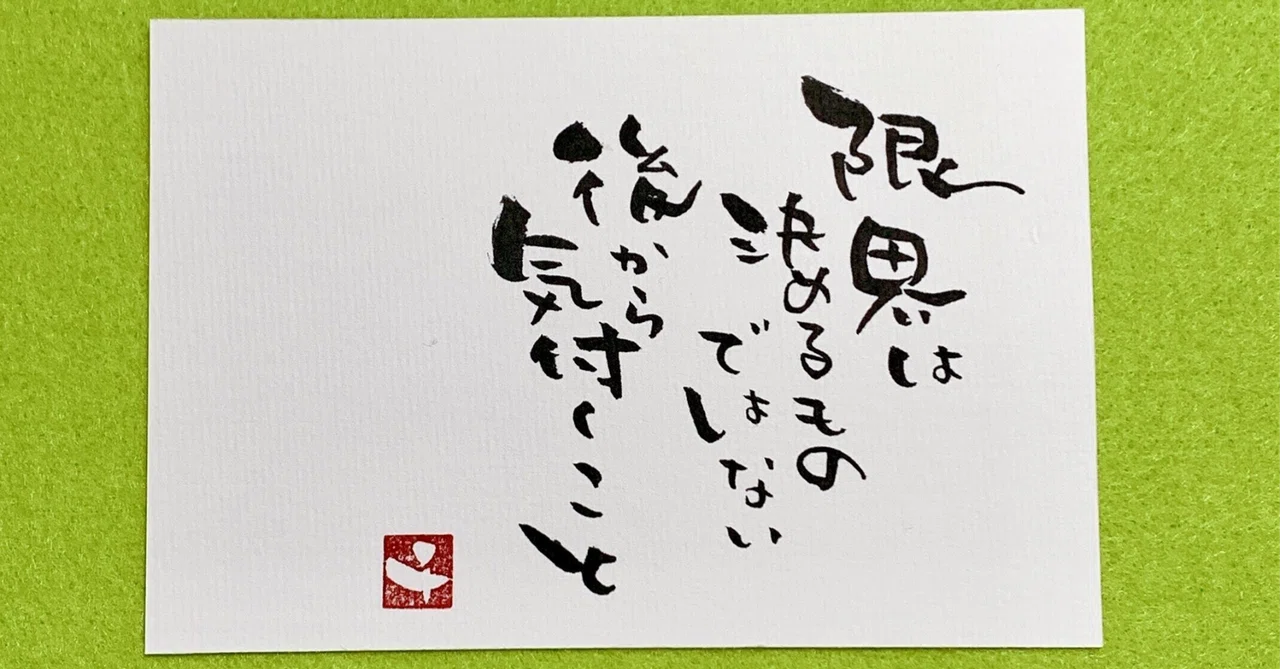 限界は
決めるもの
ではない
後から
気付くこと